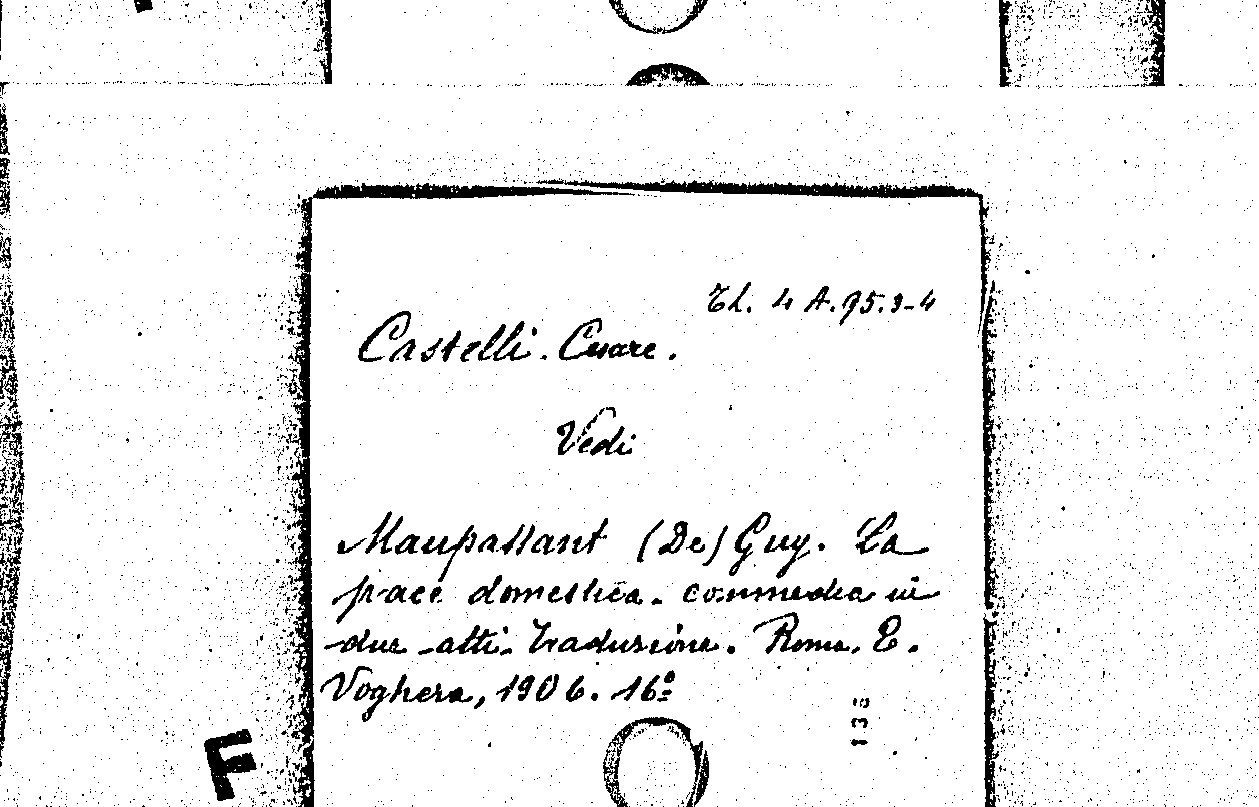 Th. 4 A. 95. 3-4
Castelli. Cesare.
Vedi
Maupassant (De) Guy. La
pace domestica. commedia in
due atti. Traduzione. Roma. E.
Voghera, 1906. 16º
133
F